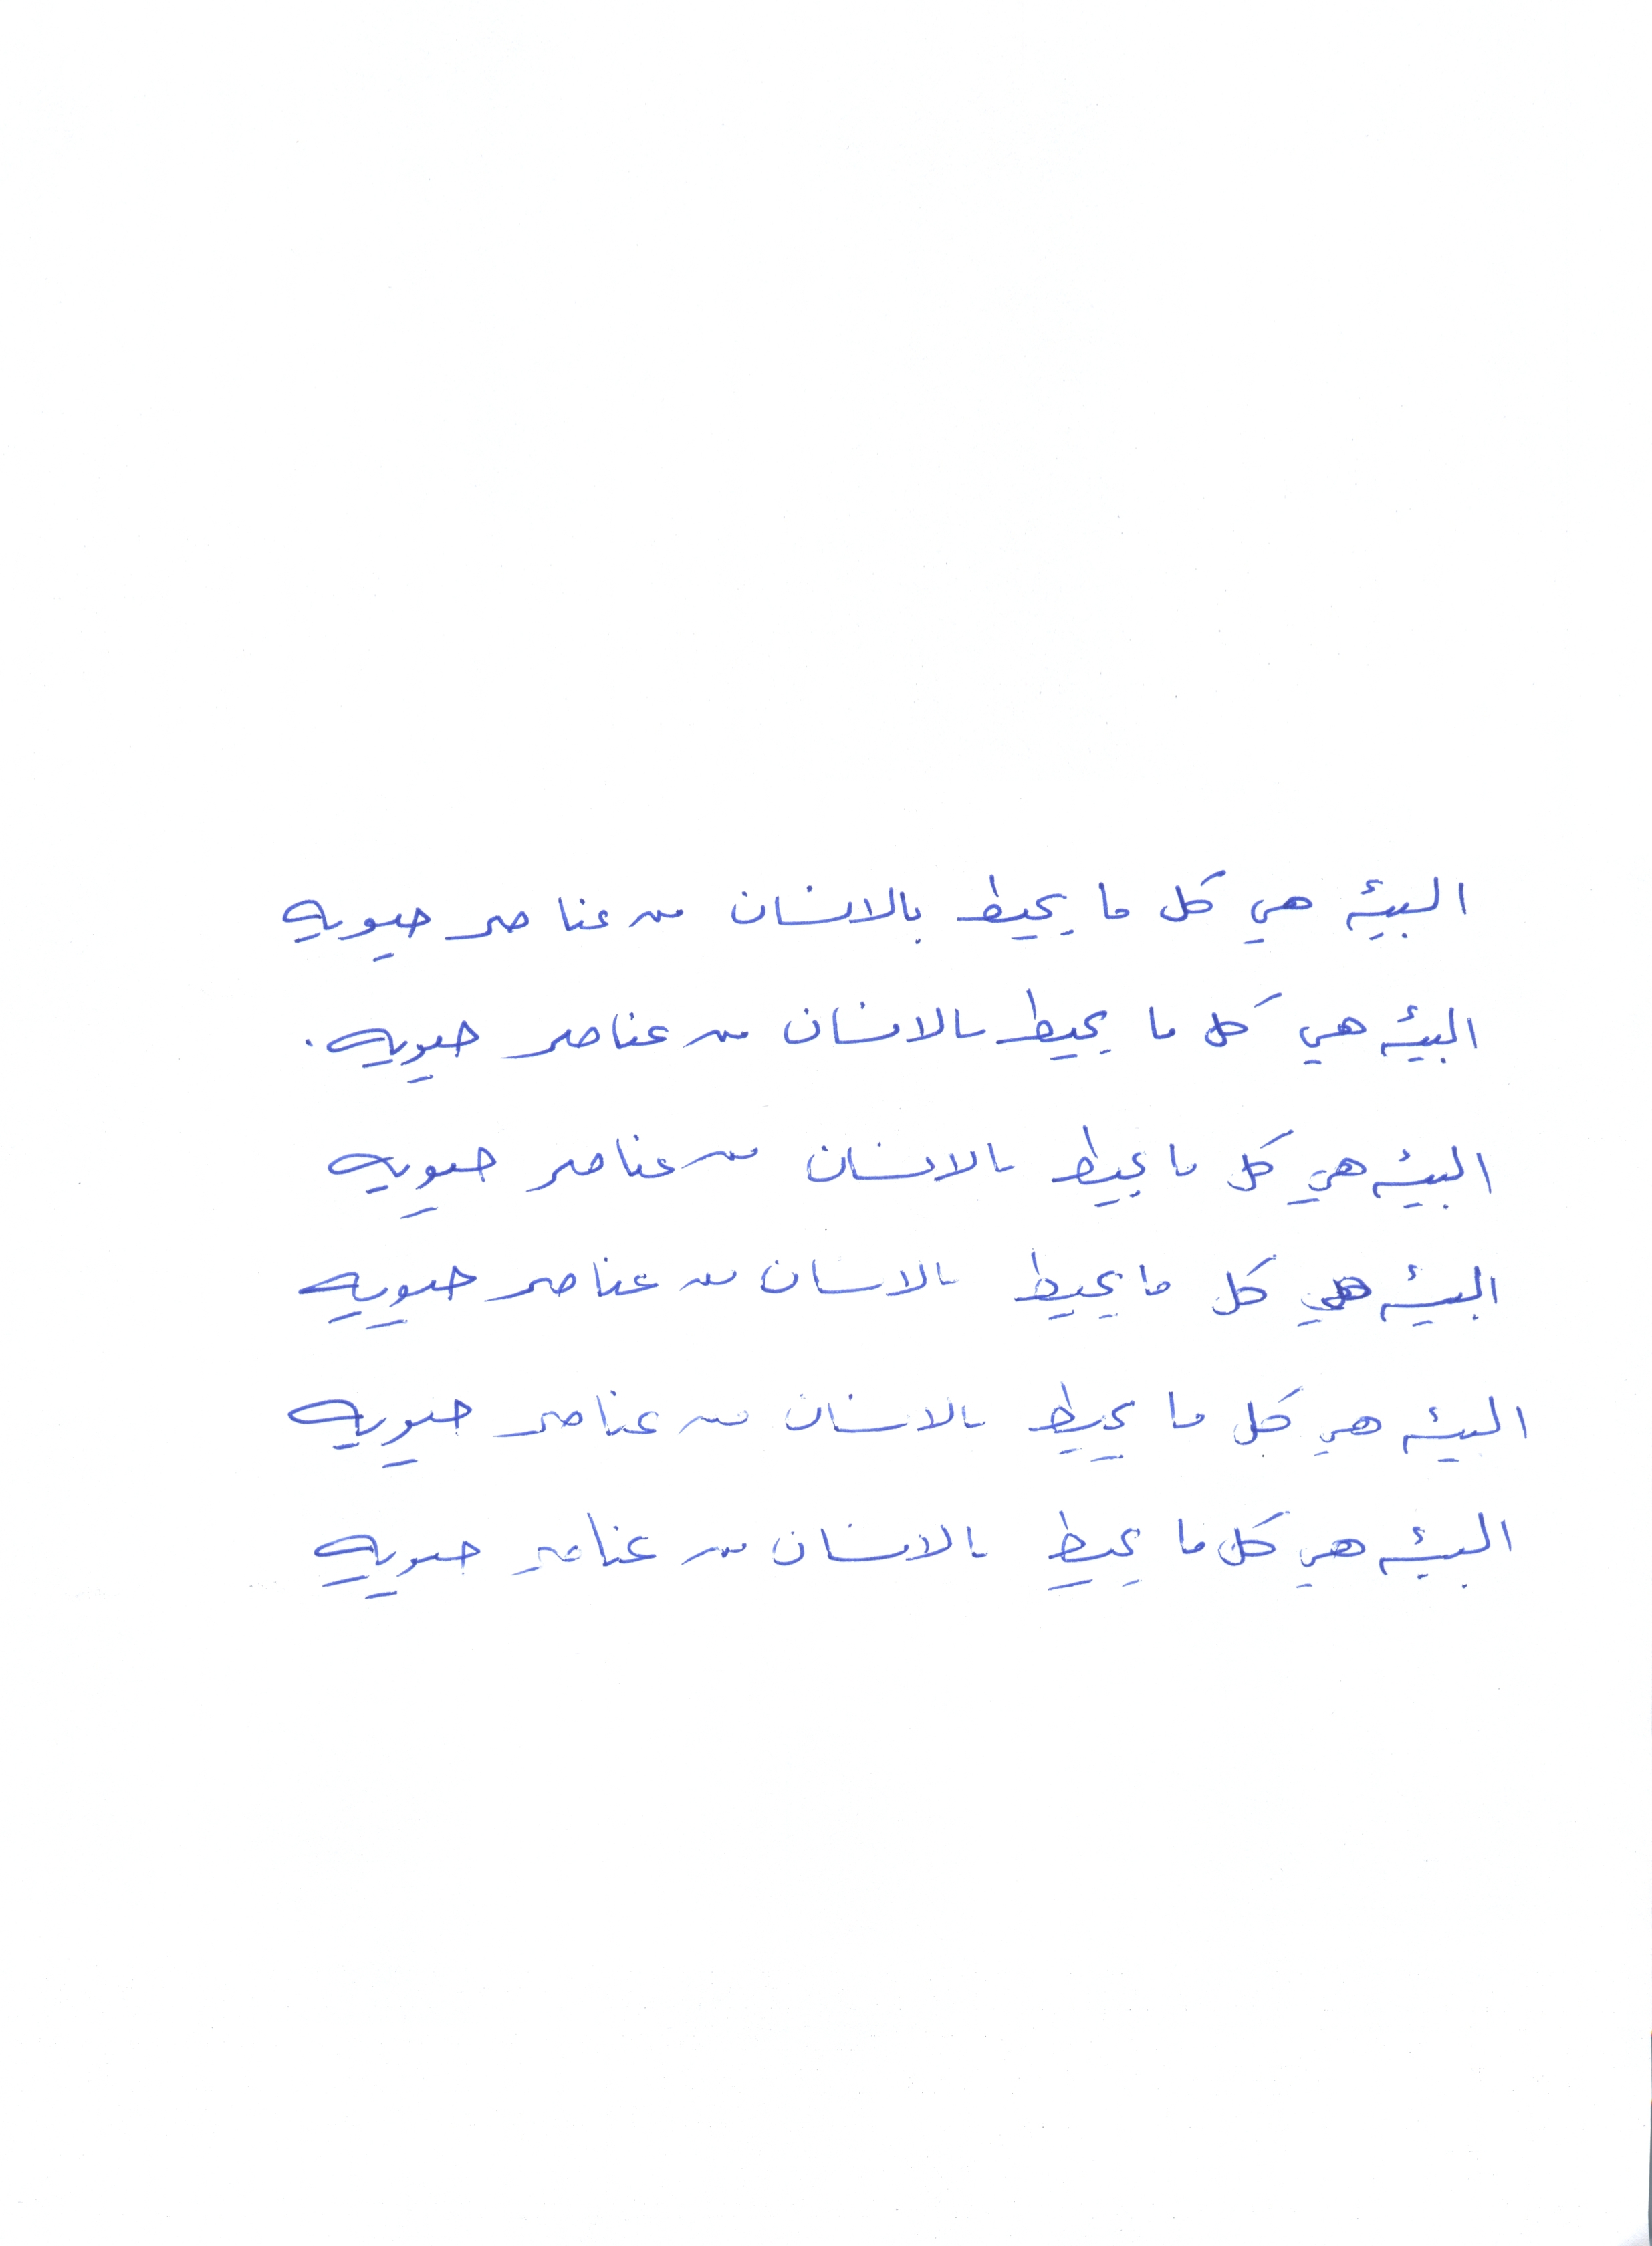 البيئه هي كل ما يحيط بالانسان من عناصر حيويه
البيئه هي كل ما يحيط بالانسان من عناصر حيويه .
البيئه هي كل ما يحيط بالانسان من عناصر حيويه
البيئه هي كل ما يحيط بالانسان من عناصر حيويه
البيئه هي كل ما يحيط بالانسان من عناصر حيويه
البيئه هي كل ما يحيط بالانسان من عناصر حيويه